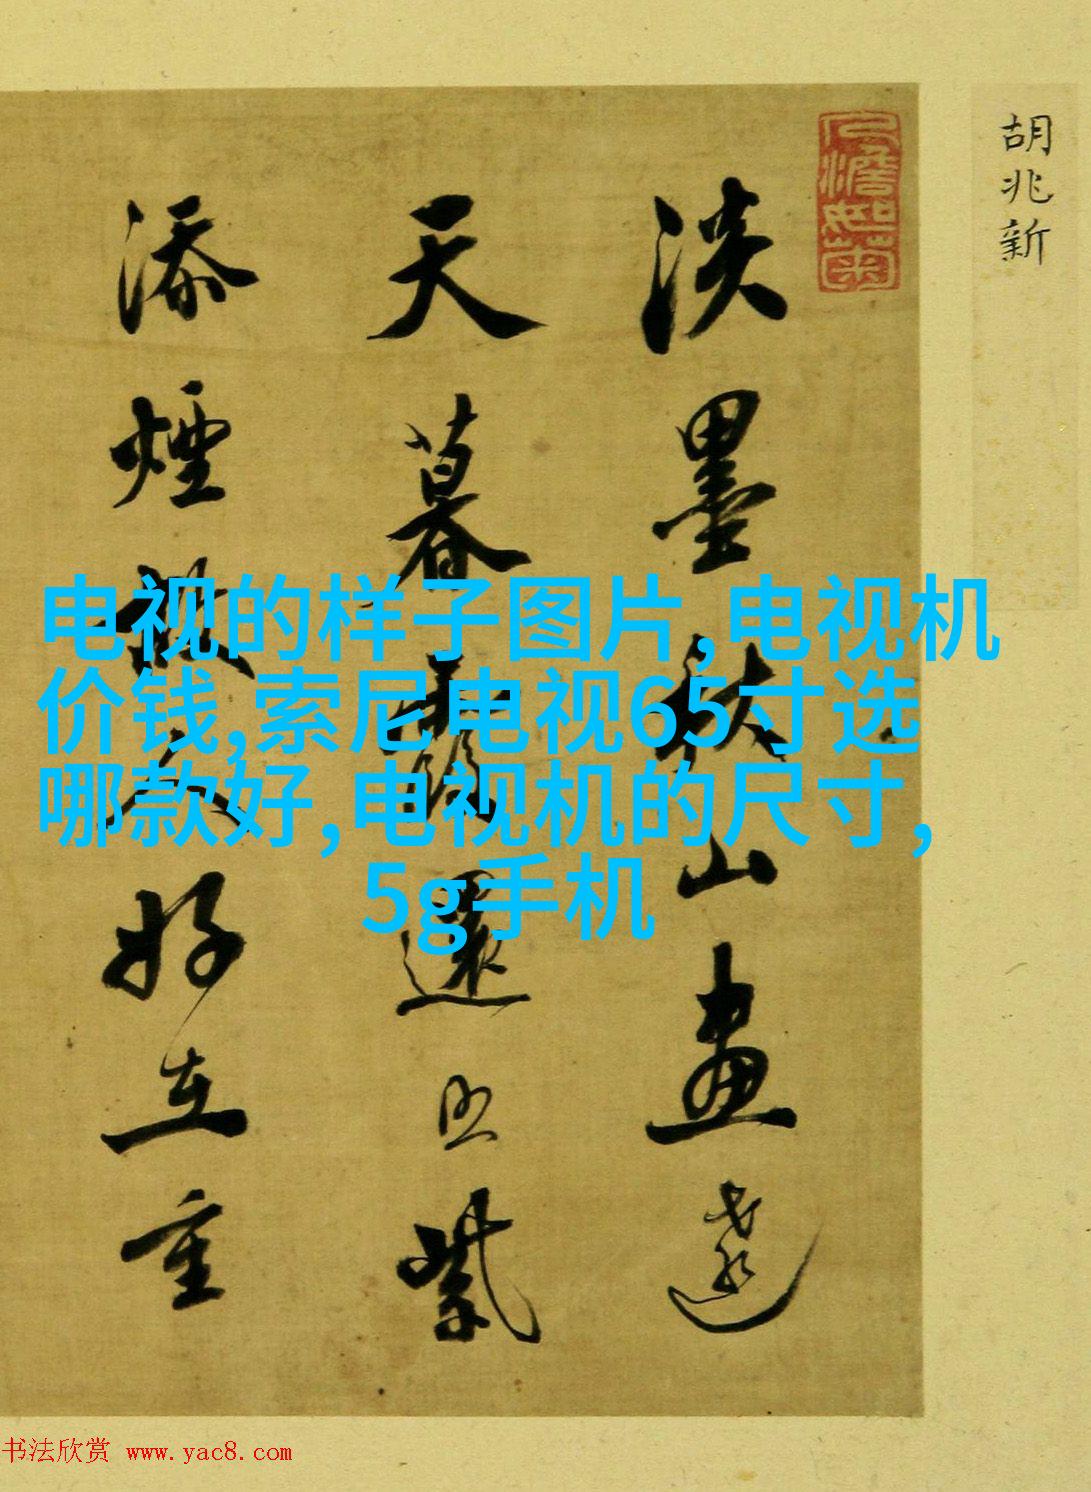 胡兆新
人澹如菊
淡墨秋山畫遠
天暮霞還照紫
添煙故人好在重
电视的样子图片,电视机
价钱,索尼电视65寸选
哪款好,电视机的尺寸,
5g手机
书法欣赏 www.yac8.com